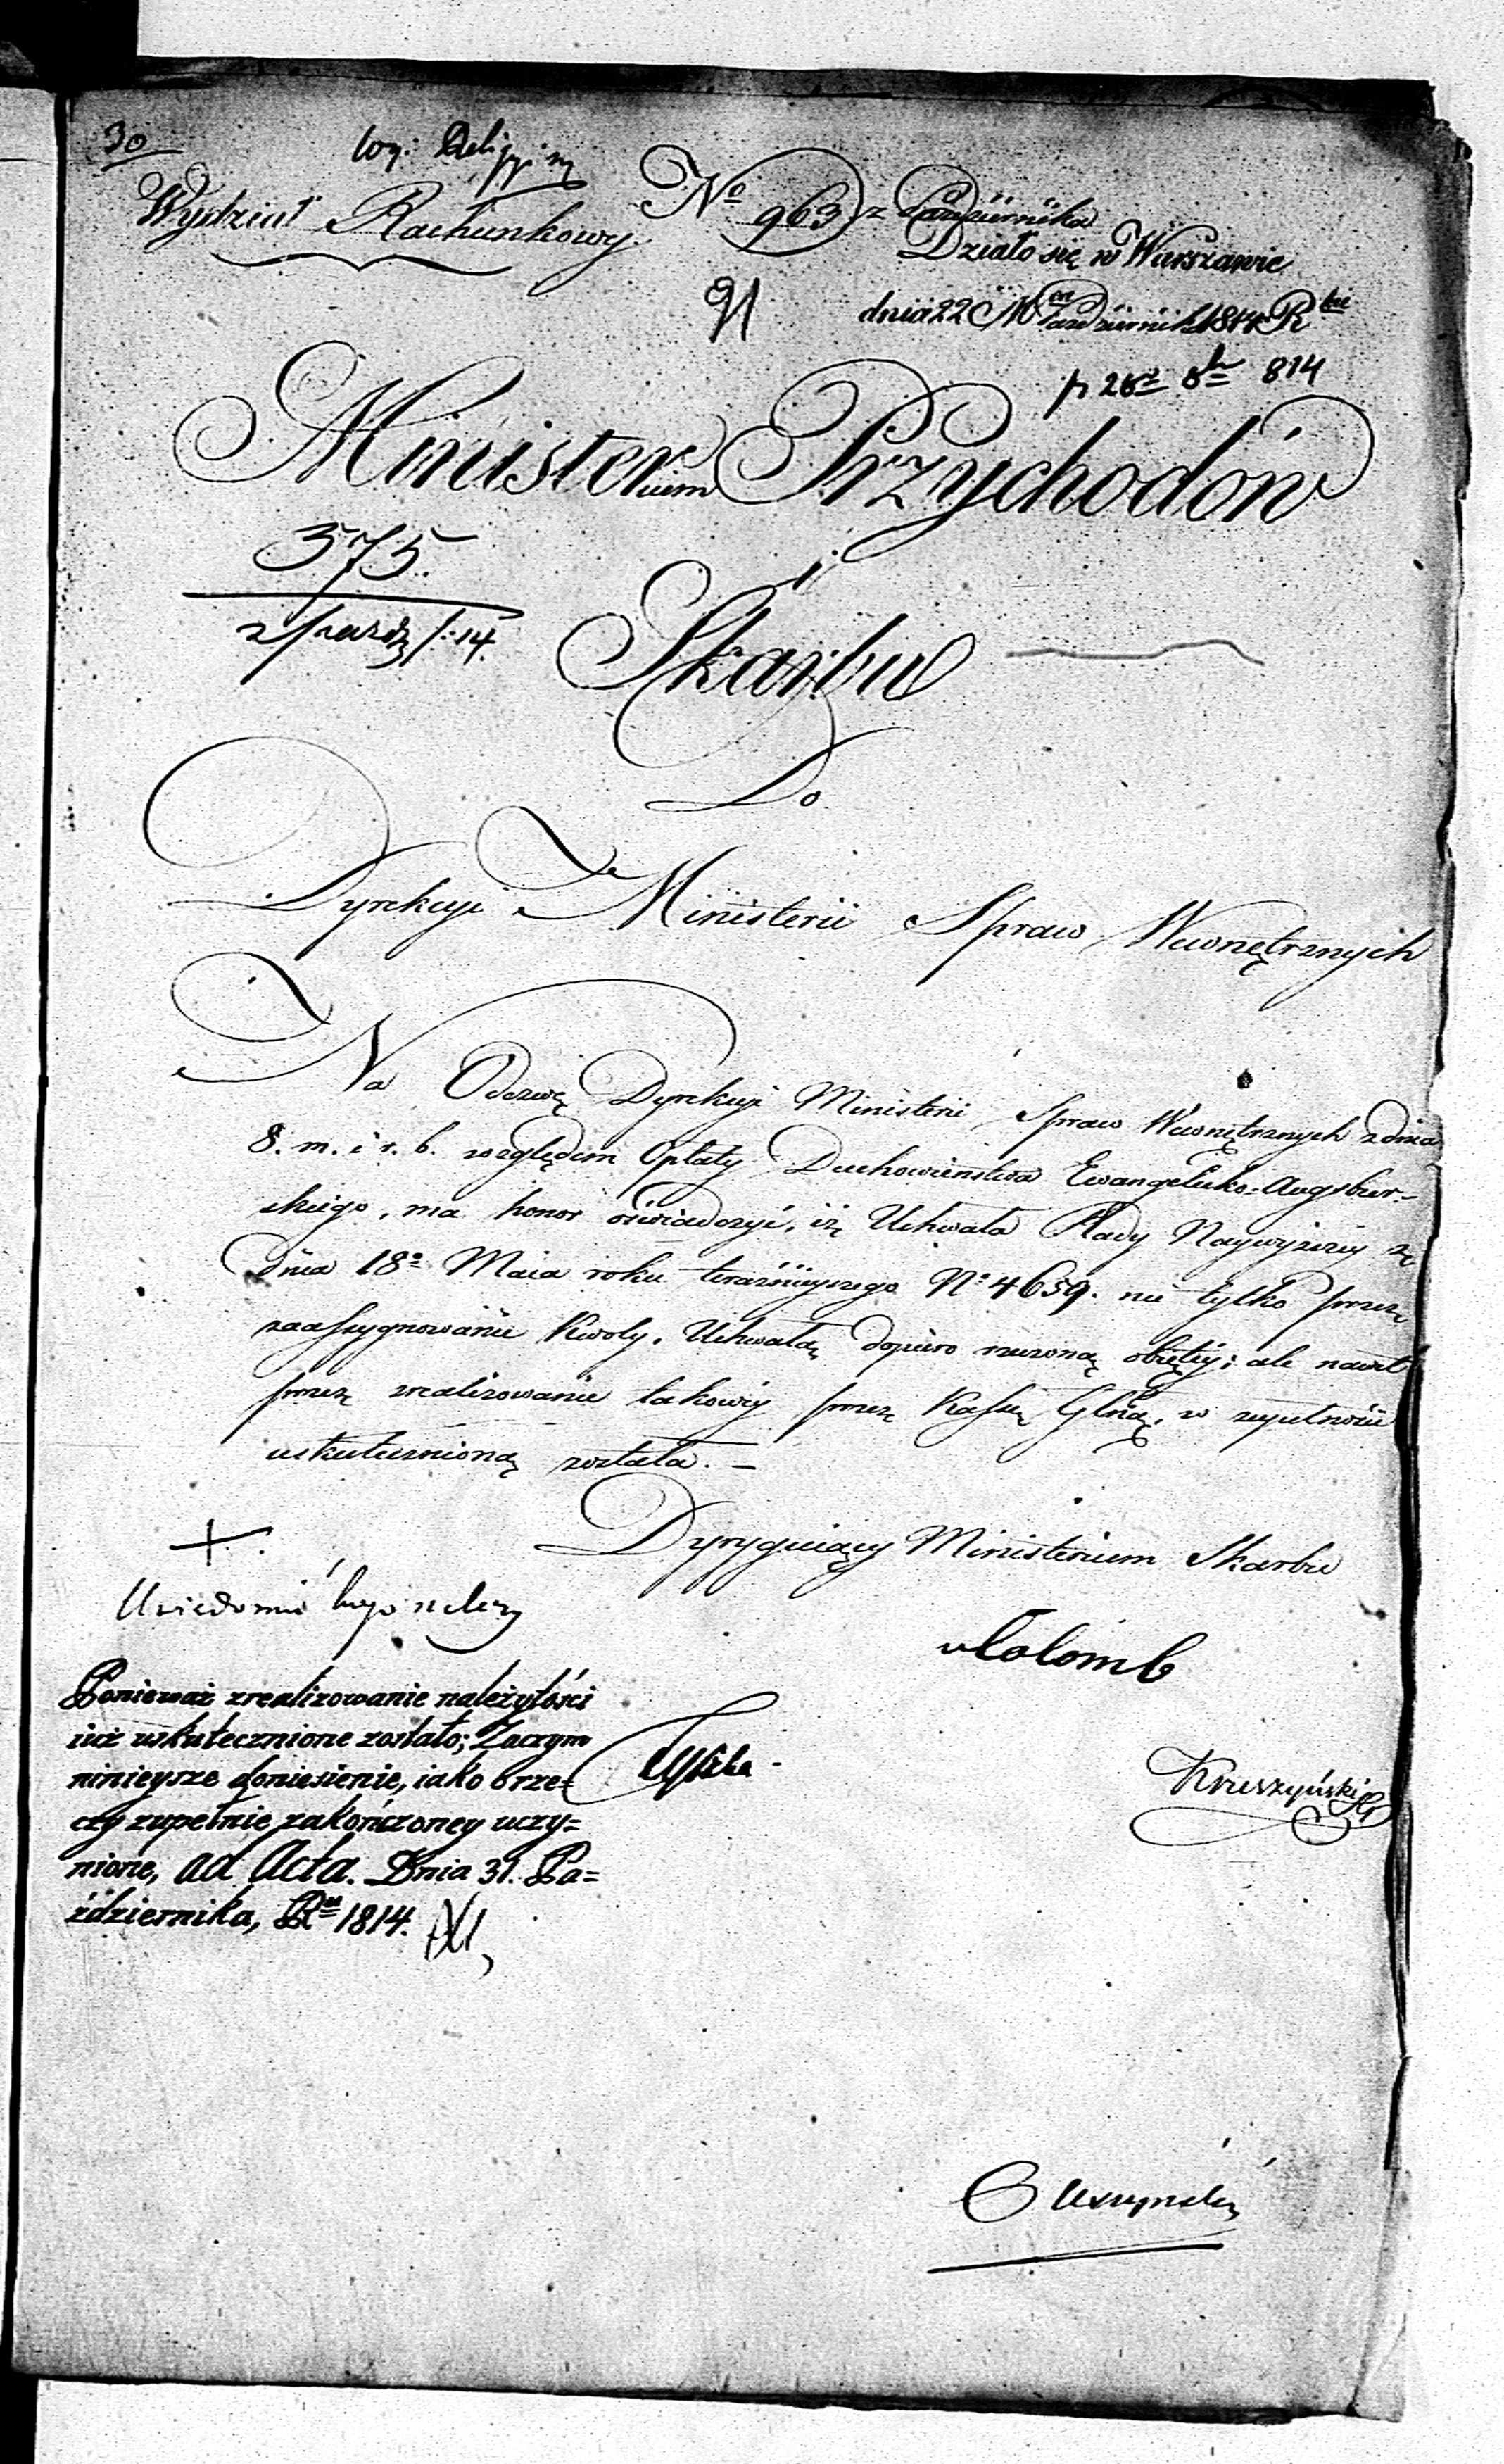 30
Wyd: Religijny
Wydział Rachunkowy.
No 963 z Października
Działo się w Warszawie
dnia 22 Mca Października 1814 Rku
91
p 26 8br 814
Ministerium Przychodów
i
Skarbu
575.
z Paźdz /:14.
Do
Dyrekcyi Ministerii Spraw Wewnętrznych
Na Odezwę Dyrekcyi Ministerii Spraw Wewnętrznych z dnia
8. m. i r. b. względem Opłaty Duchowieństwa Ewangelicko=Augsbur-
skiego, ma honor oświadczyć, iż Uchwała Rady Naywyższey z
dnia 18o Maia roku teraźnieyszego No 4659. nie tylko przez
zaassygnowanie kwoty, Uchwałą dopiero rzeczoną obiętey; ale nawet
przez zrealizowanie takowey przez Kassę Głną, w zupełności
uskutecznioną została. —
Dyryguiący Ministerium Skarbu
Colomb
Uwiadomić kogo należy
Ponieważ zrealizowanie należytości
iuż uskutecznione zostało; Zaczym
ninieysze doniesienie, iako o rze=
czy zupełnie zakończoney uczy=
nione, ad Acta. Dnia 31. Pa=
ździernika, Ru 1814.
Kruszyński